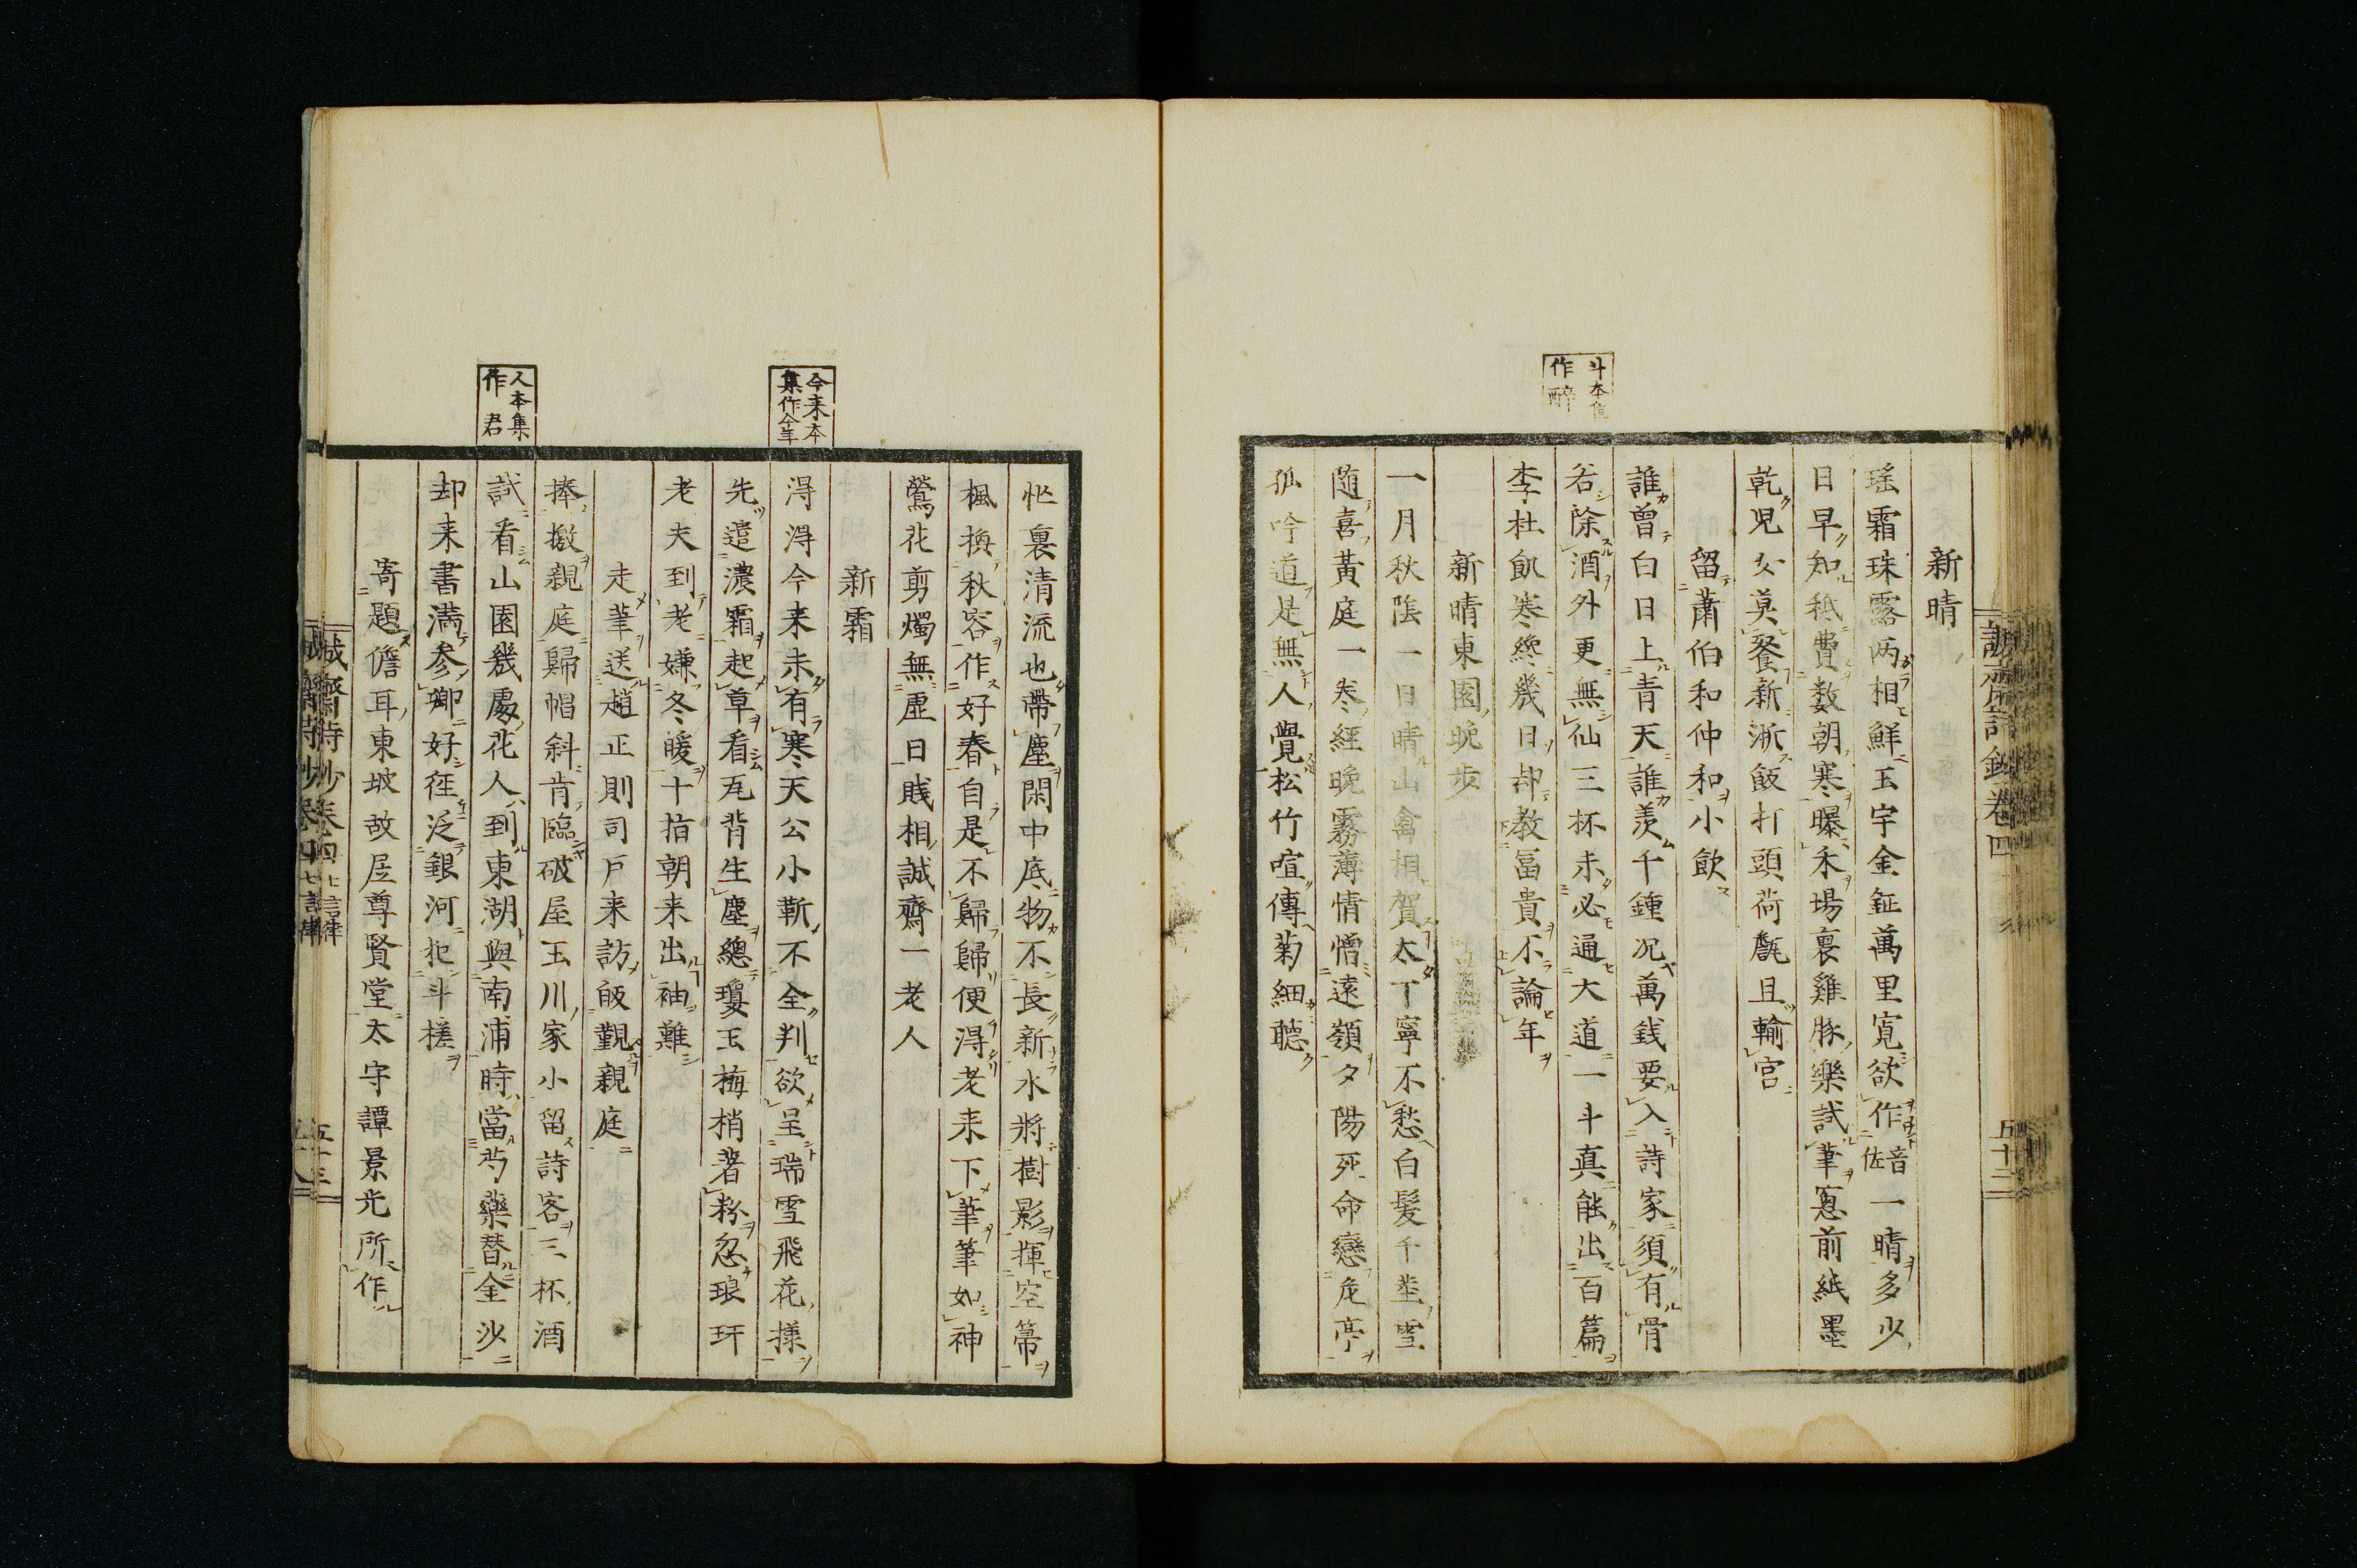 新晴
瑶霜珠露两相鮮玉宇金鉦萬里寛欲作音佐一晴多少
日早知秖費数朝寒曝禾場裏雞豚樂試筆窓前紙墨
乾児女莫餐新淅飯打頭荷氎且輸官
留蕭伯和仲和小飲
誰曽白日上青天誰羡千鍾况萬銭要入詩家須有骨
若除酒外更無仙三杯未必通大道一斗真能出百篇
李杜飢寒纔幾日却教冨貴不論年
新晴東園晩歩
一月秋隂一日晴山禽相賀太丁寧不愁白髪千莖雪
随喜黄庭一巻經晩霧薄情憎遠嶺夕陽死命戀危亭
孤吟道是無人覺松竹喧傳菊細聴
斗本集作醉
誠齋詩鈔卷四
五十二
忙裏清流也帶塵閑中底物不長新水將樹影揮空箒
楓換秋容作好春自是不歸歸便得老来下筆筆如神
鶯花剪燭無虚日賎相誠齋一老人
新霜
得得今来未有寒天公小靳不全判欲呈瑞雪飛花様
先遣濃霜起草看瓦背生塵總瓊玉梅梢著粉忽琅玕
老夫到老嫌冬暖十指朝来出袖難
走筆送趙正則司戸来訪皈覲親庭
捧檄親庭歸帽斜肯臨破屋玉川家小留詩客三杯酒
試看山園幾處花人到東湖與南浦時當芍藥替金沙
却来書満参卿好徃泛銀河犯斗槎
寄題儋耳東坡故居尊賢堂太守譚景先所作
今来本集作今年
人本集作君
誠齋詩鈔卷四七言律
五十三